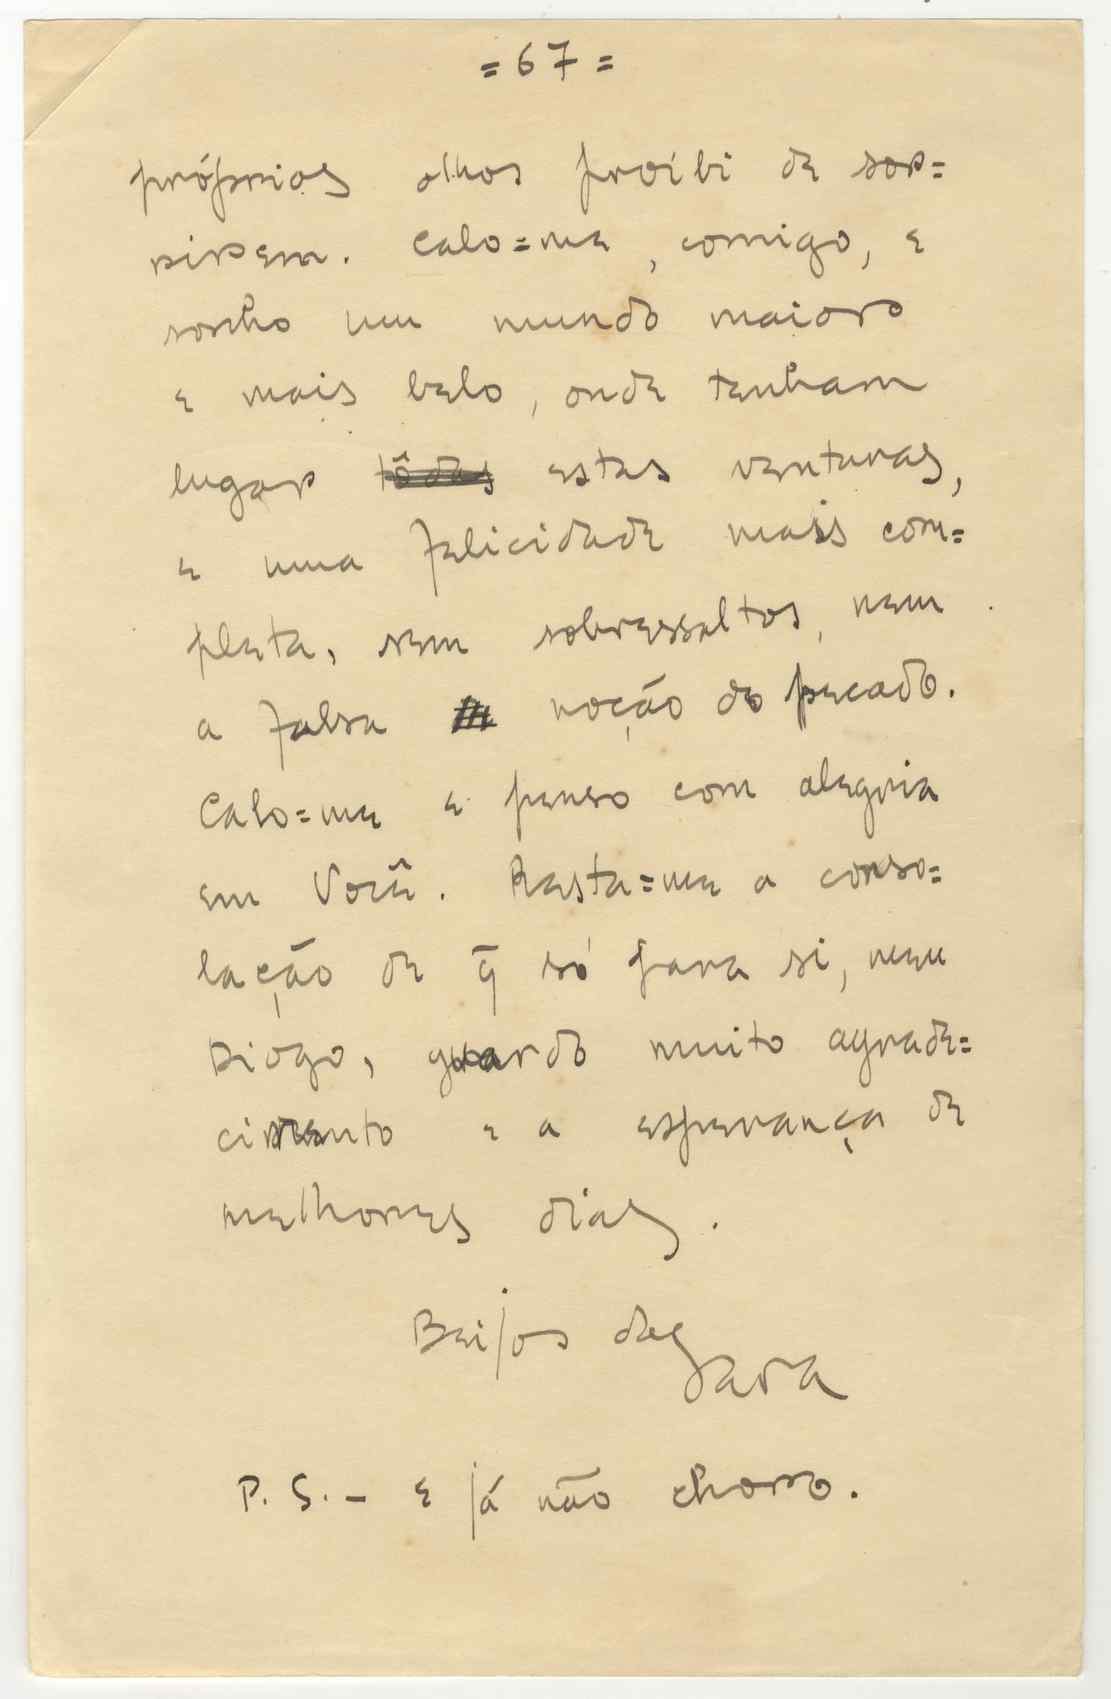 = 67 =
próprios olhos proíbi de sor=
rirem. Calo=me, comigo, e
sonho um mundo maior
e mais belo, onde tenham
lugar tôdas estas venturas,
e uma felicidade mais com=
pleta, sem sobressaltos, nem
a falsa noção do pecado.
Calo=me e penso com alegria
em Você. Resta=me a conso=
lação de q̃ só para si, meu
Diogo, guardo muito agrade=
cimento e a esperança de
melhores dias.
Beijos da
Sara
P. S. - E já não choro.